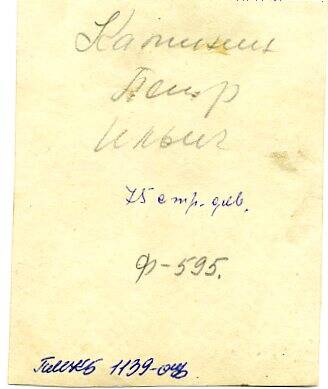 Калинин
Петр
Ильич
75 стр. див.
Ф-595.
1139-оф